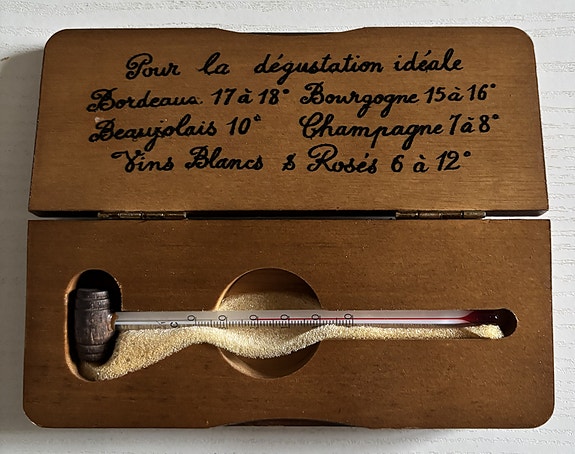 Pour la dégustation idéale
Bordeaux 17 à 18° Bourgogne 15 à 16°
Beaujolais 10° Champagne 7 à 8°
Vins Blancs & Rosés 6 à 12°